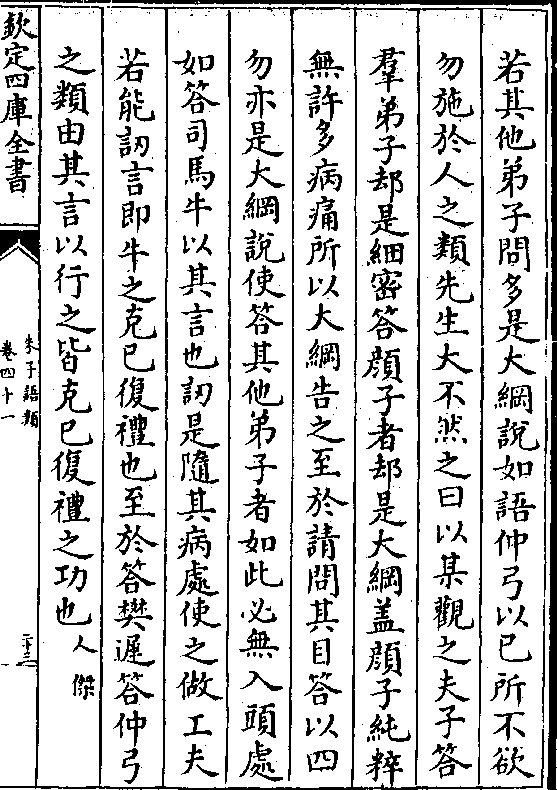 若其他弟子問多是大綱說如語仲弓以已所不欲
勿施於人之類先生大不然之曰以某觀之夫子答
羣弟子却是細密答顔子者却是大綱盖顔子純粹
無許多病痛所以大綱告之至於請問其目答以四
勿亦是大綱說使答其他弟子者如此必無入頭處
如答司馬牛以其言也訒是隨其病處使之做工夫
若能訒言即牛之克已復禮也至於答樊遲答仲弓
之類由其言以行之皆克已復禮之功也人傑
欽定四庫全書
朱子語類
卷四十一
二十三